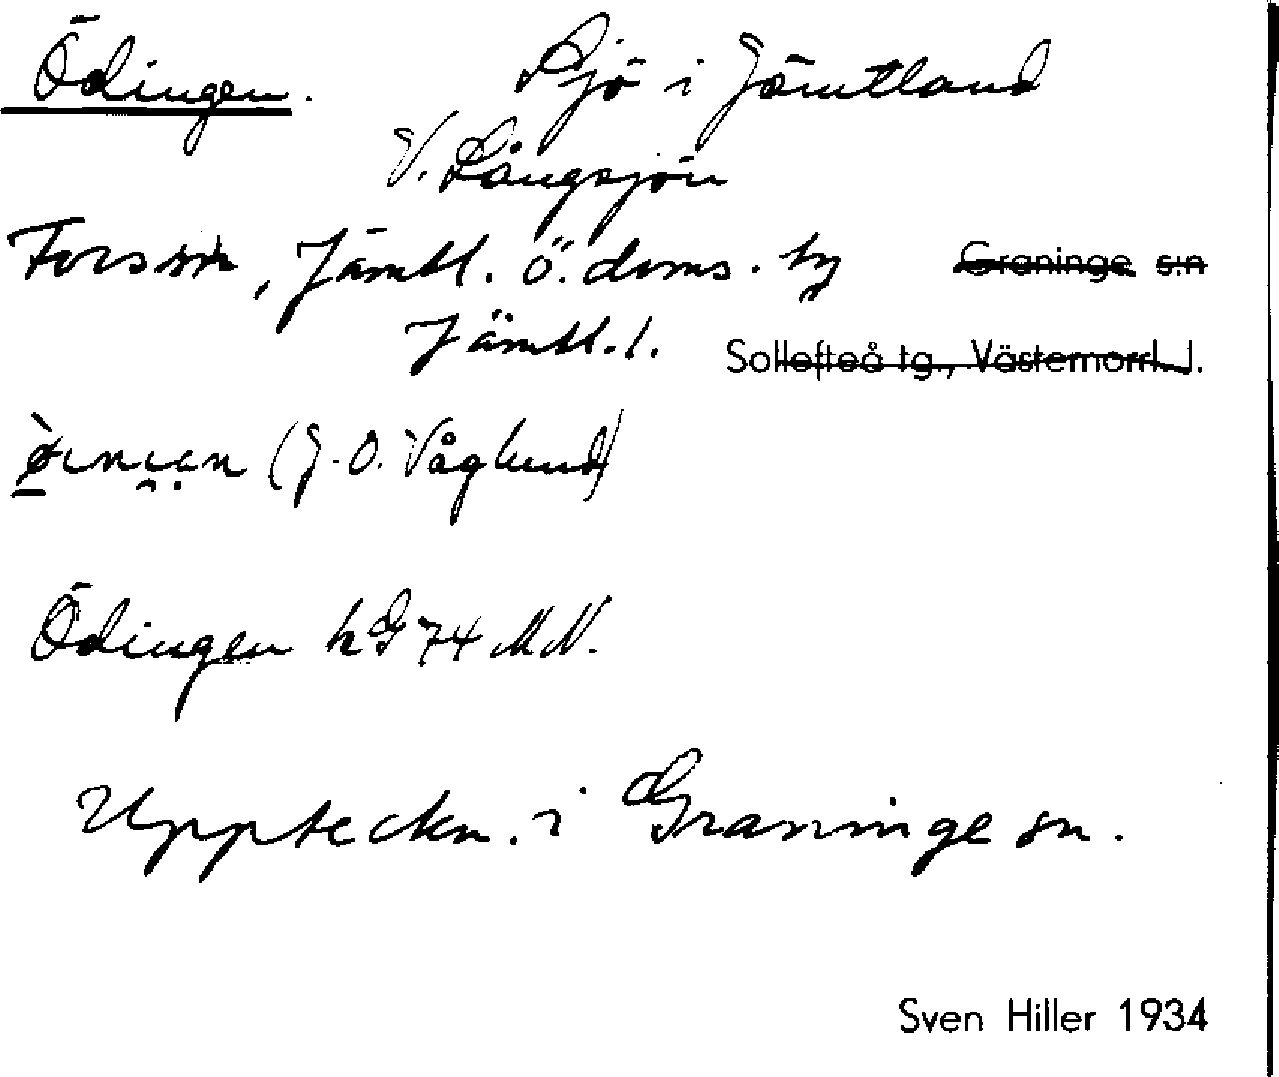 Ödingen. Sjö i Jämtland
V. Långsjön
Fors sn, Jämtl. ö. doms. tg ~~Graninge s:n~~
Jämtl. l. ~~Sollefteå tg., Västernorrl. l.~~
(J. O. Våglund)
Ödingen hG 74 MN.
Uppteckn. i Graninge sn.
Sven Hiller 1934